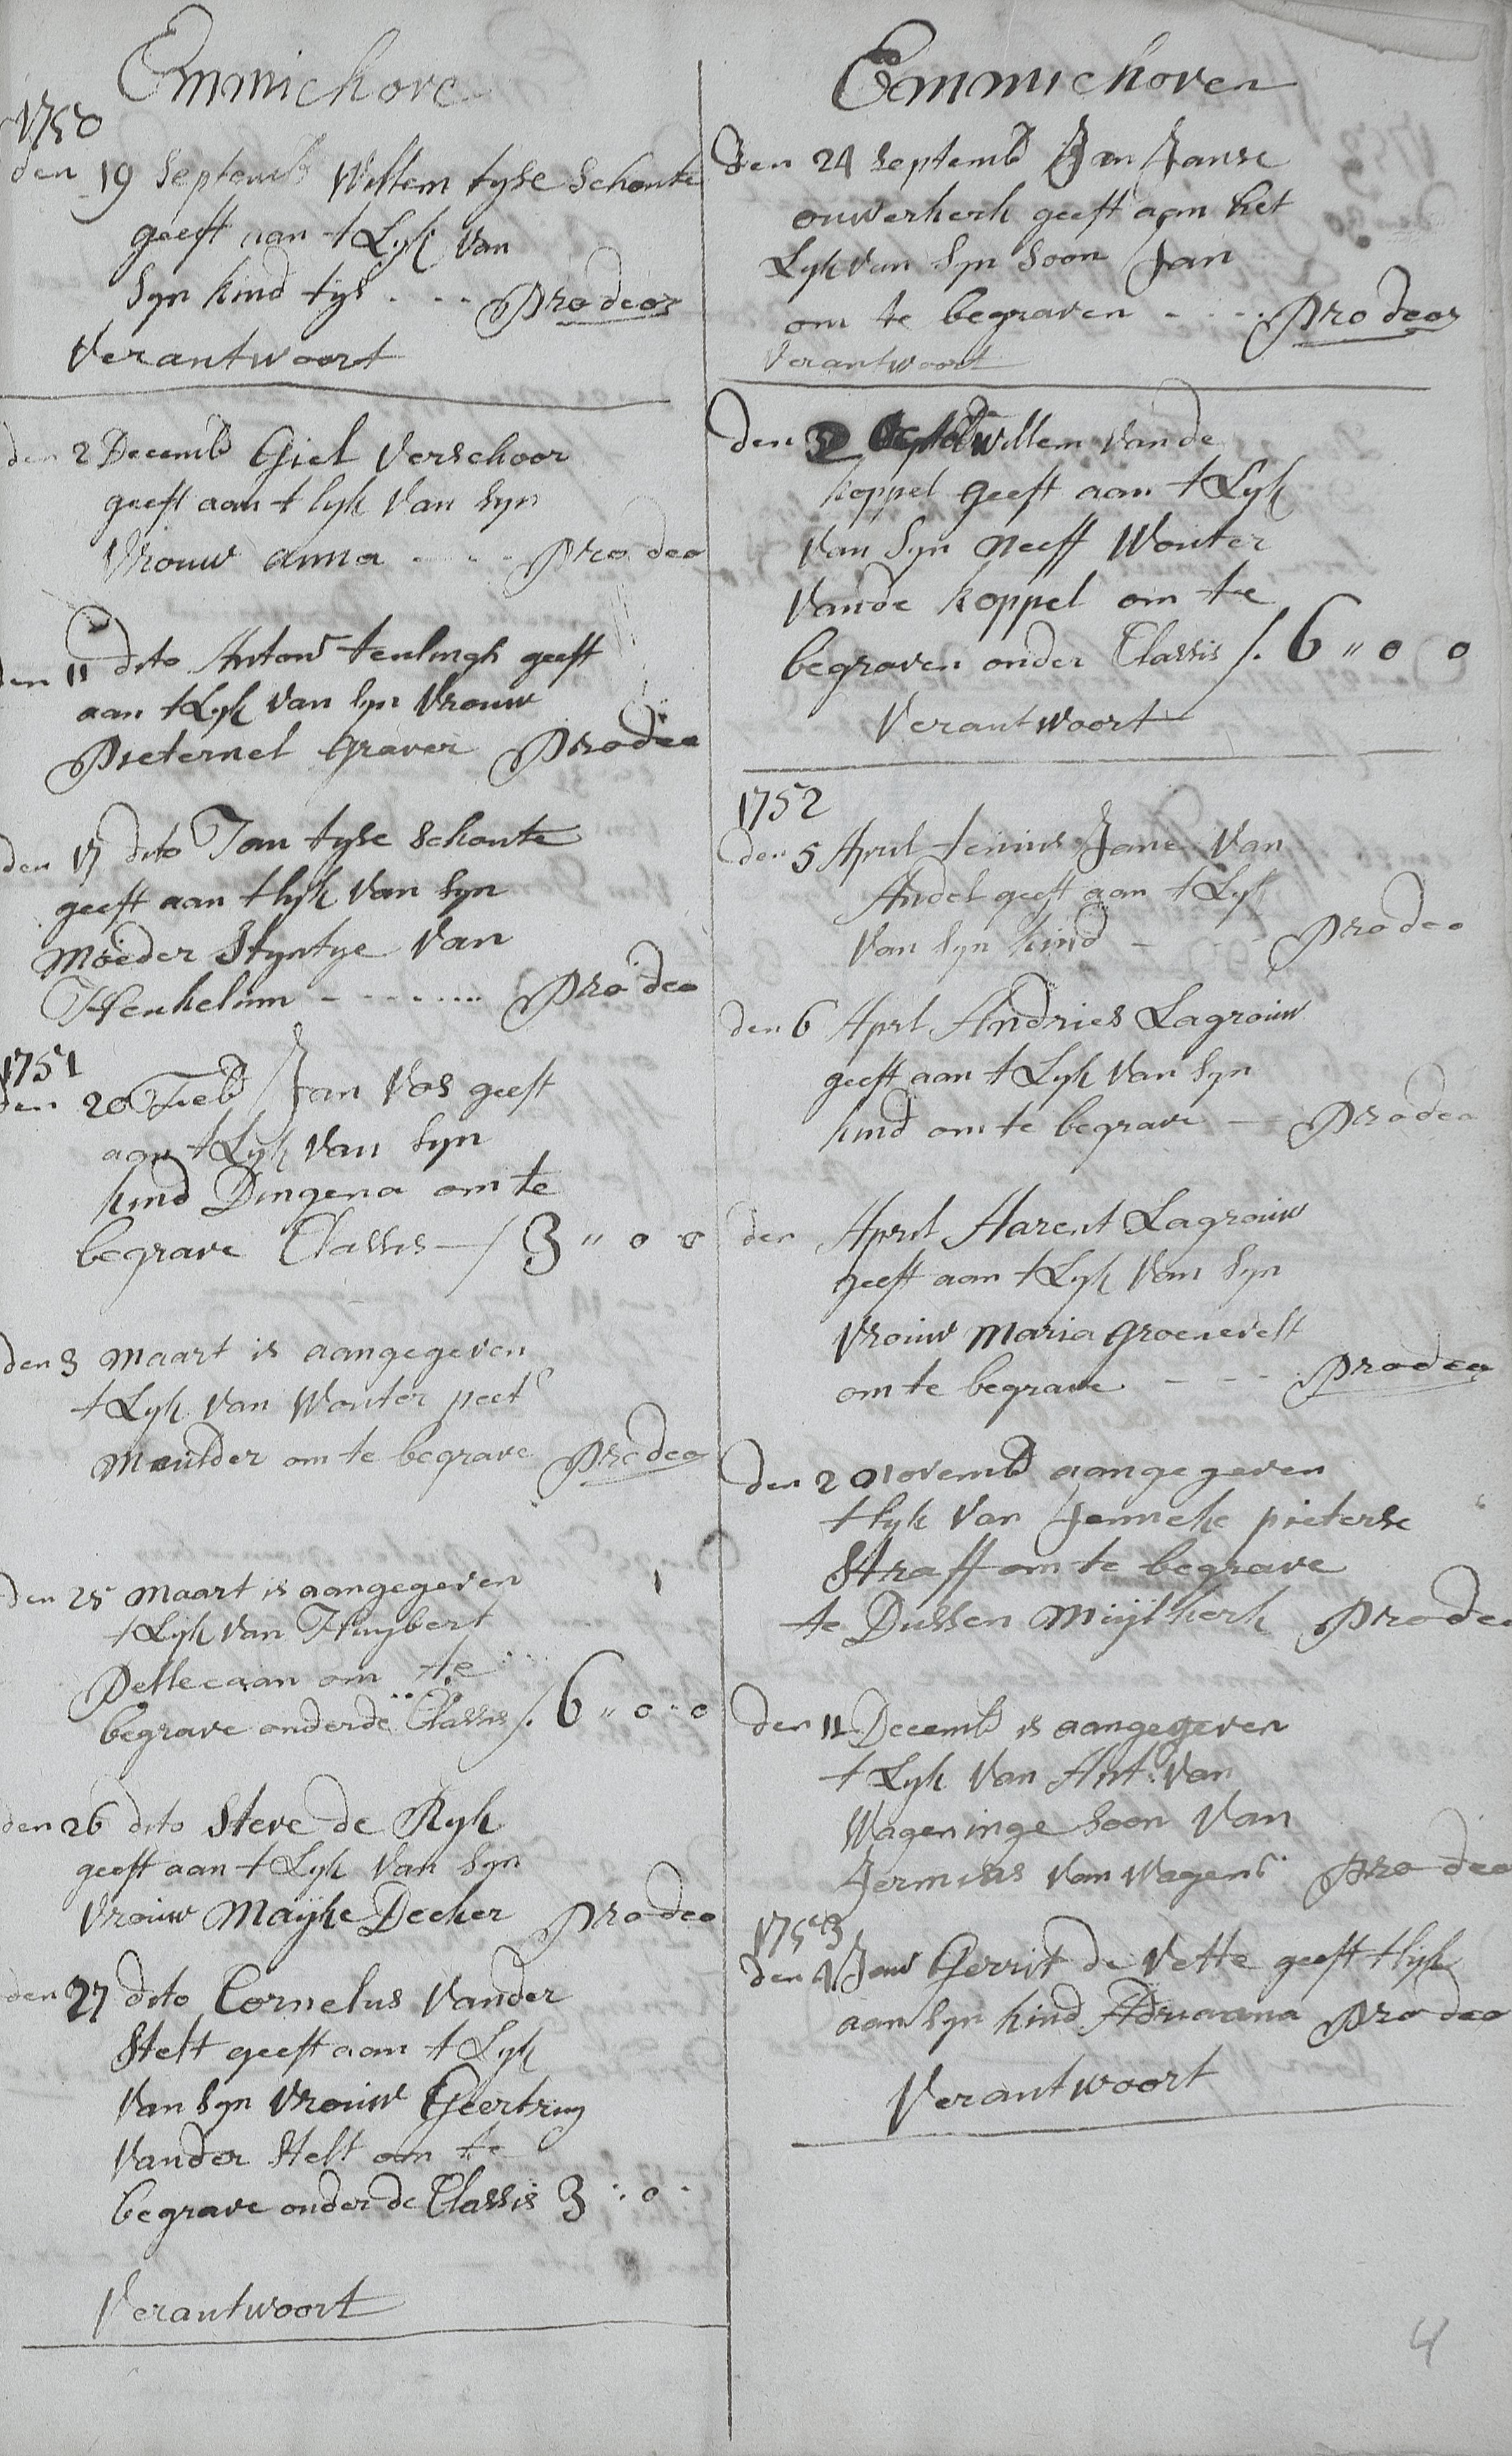 Emmichove
1750
den 19 Septemb Willem tyse Schoute
geeft aan t Lyk van
Syn kind tys . . . . pro deos
Verantwoort
den 2 Decemb Giel Verschoor
geeft aan t lyk van syn
Vrouw anna . . . . pro deo
den 11 dito Anton teulingh geeft
aan t Lyk van syn Vrouw
Pieternel Graver pro deo
den 17 dito Jan tyse Schoute
geeft aan t lyk van syn
moeder Styntye van
Heukelum - - - . . . . pro deo
1751
den 20 Feeb Jan Vos geeft
aan t Lyk van syn
kind Dingena om te
begrave Classis — / 3 " 0 0
den 3 maart is aangegeven
t Lyk van Wouter peet
Meulder om te begrave pro deo
den 25 maart is aangegeven
t Lyk van Huybert
Pellecaan om te
begrave onder de Classis /. 6 " 0 " 0
den 26 dito Steve de Ryk
geeft aan t Lyk van syn
Vrouw Mayke Decker pro deo
den 27 dito Cornelus Vander
Stelt geeft aan t Lyk
van syn Vrouw Geertruy
Vander Stelt om te
begrave onder de Classis 3 : 0 :
Verantwoort
Emmichoven
den 24 septemb Jan Janse
ouwerkerk geeft aan het
Lyk van Syn Soon Jan
om te begraven - - - . pro deos
Verantwoort
den Willem vande
koppel geeft aan t Lyk
van Syn Neeff Wouter
vande koppel om te
begraven onder Classis /. 6 " 0 0
Verantwoort
1752
den 5 April teunis Jane van
Andel geeft aan t Lyk
van syn kind - - - pro deo
den 6 Aprl Andries Lagrouw
geeft aan t Lyk van syn
kind om te begrave — pro deo
den April Aarent Lagrouw
geeft aan t Lyk van syn
Vrouw Maria Groenevelt
om te begrave - - - . pro deo
den 2 novemb aangegeven
t lyk van Jenneke pieterse
Straff om te begrave
te Dussen Muijlkerk pro deo
den 11 Decemb is aangegeven
t Lyk van Ant. van
Wageninge soon van
Jermias van Wagen. pro deo
1753
den 1 Jan Gerrit de Vette geeft t lyk
aan syn kind Adriaana pro deo
Verantwoort
4